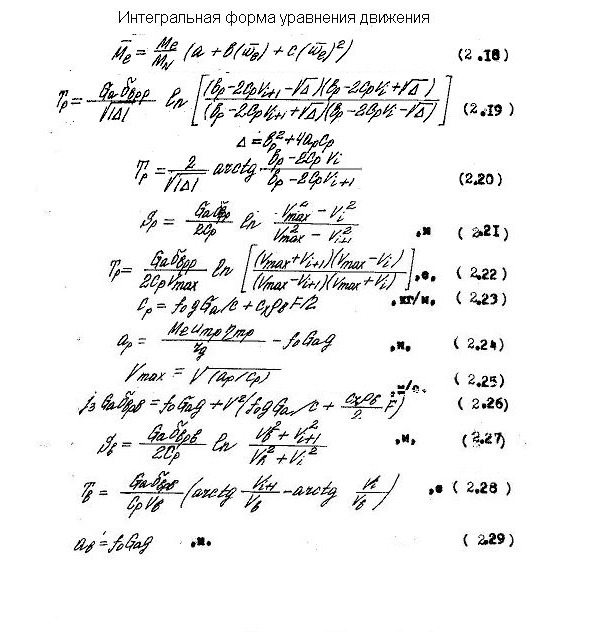 Интегральная форма уравнения движения
M̄e = Me/MN (a + b(w̄e) + c(w̄e)²) (2.18)
Tp = Gaδврр/√|Δ| ln [(bp-2CpVi+1-√Δ)(bp-2CpVi+√Δ)/(bp-2CpVi+1+√Δ)(bp-2CpVi-√Δ)] (2.19)
Δ = bp²+4apCp
Tp = 2/√|Δ| arctg bp-2CpVi/bp-2CpVi+1 (2.20)
Sp = Gaδвр/2Cp ln Vmax²-Vi²/Vmax²-Vi+1² ,м (2.21)
Tp = Gaδврр/2CpVmax ln [(Vmax+Vi+1)(Vmax-Vi)/(Vmax-Vi+1)(Vmax+Vi)] ,с, (2.22)
Cp = f0gGa/c + cxρвF/2 ,кг/м, (2.23)
ap = Me uтр ηтр/rg - f0Gag ,н, (2.24)
Vmax = √(ap/cp) ,м/с. (2.25)
jз Gaδврв = f0Gag + V²(f0gGa/c + cxρв/2 F) (2.26)
Sв = Gaδврв/2Cp ln Vв²+Vi+1²/Vв²+Vi² ,м, (2.27)
Tв = Gaδврв/CpVв (arctg Vi+1/Vв - arctg Vi/Vв) ,с (2.28)
aв = f0Gag ,н. (2.29)